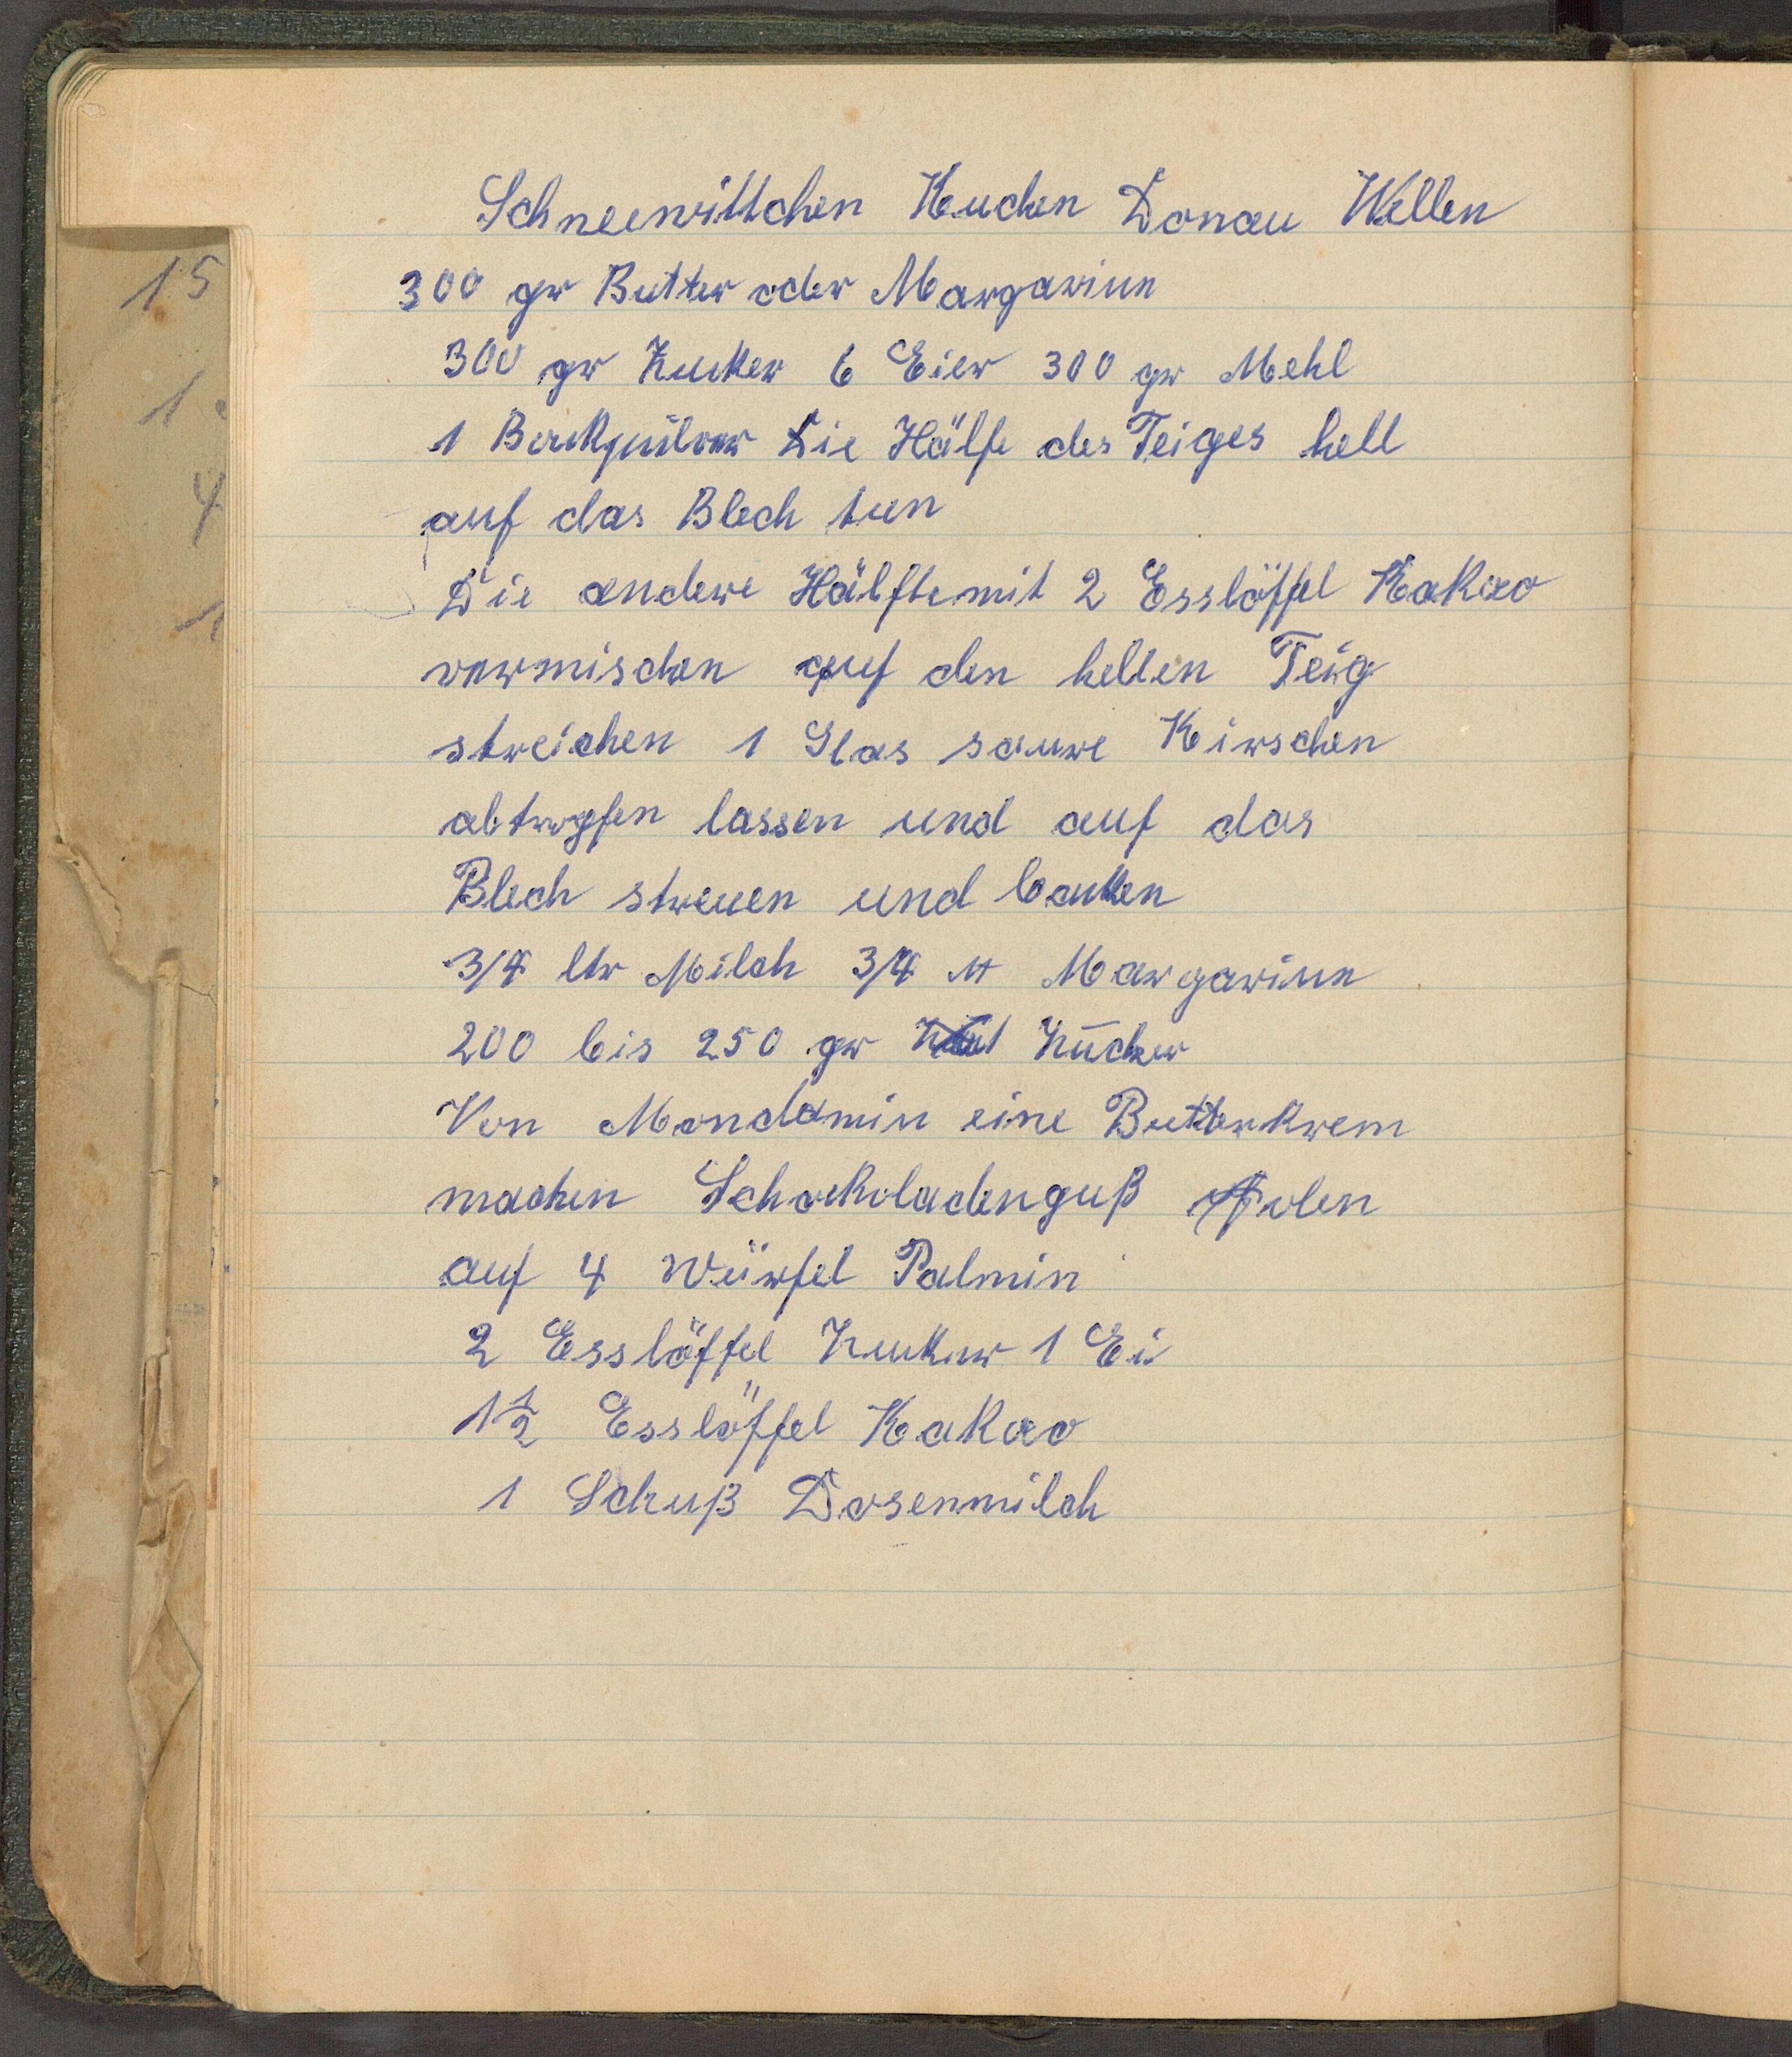 Schneewittchen Kuchen Donau Wellen
300 gr Butter oder Margarine
300 gr Zucker 6 Eier 300 gr Mehl
1 Backpulver Die Hälfe des Teiges hell
auf das Blech tun
Die andere Hälfte mit 2 Esslöffel Kakao
vermischen auf den hellen Teig
streichen 1 Glas saure Kirschen
abtropfen lassen und auf das
Blech streuen und backen
3/4 ltr Milch 3/4 Margarine
200 bis 250 gr Zucker
Von Mondamin eine Butterkrem
machen Schokoladenguß
auf 4 Würfel Palmin
2 Esslöffel Zucker 1 Ei
1 1/2 Esslöffel Kakao
1 Schuß Dosenmilch
15
1
4
1